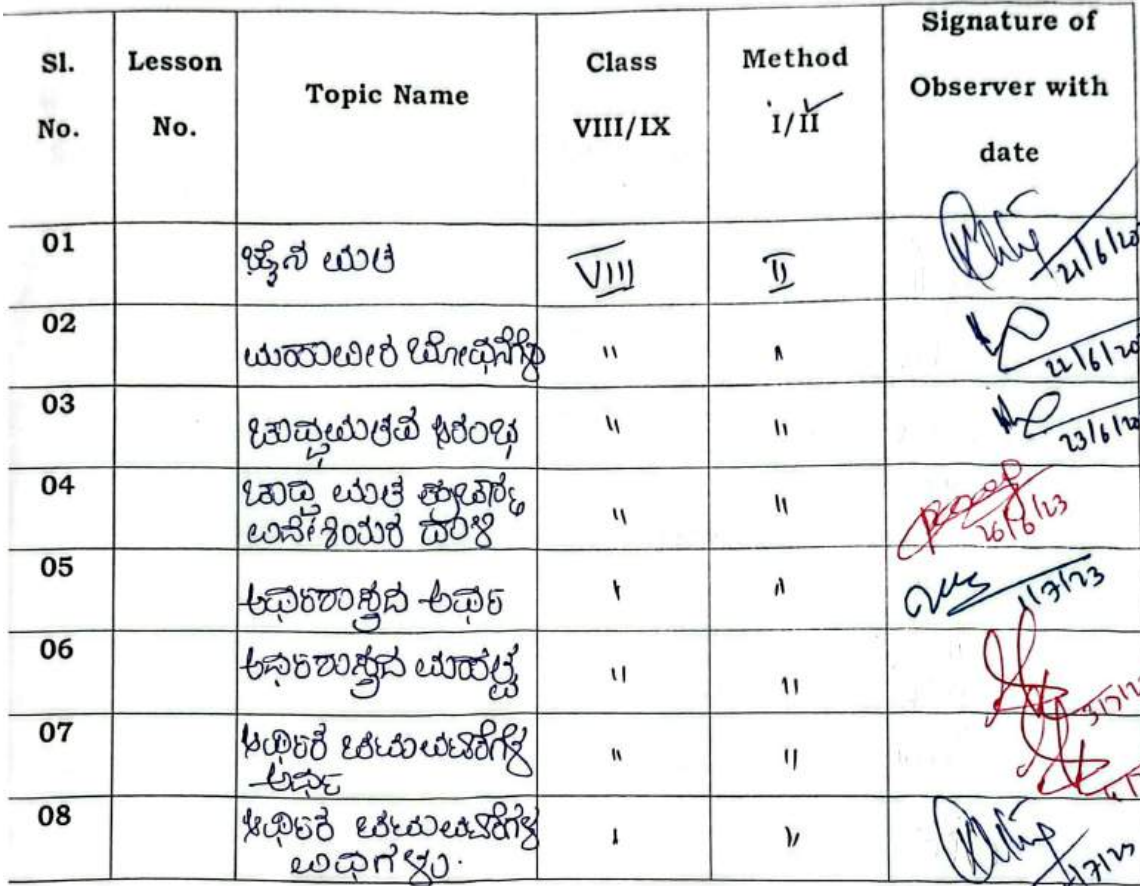 Sl. No. Lesson No. Topic Name Class VIII/IX Method I/II Signature of Observer with date
01 ಜೈನ ಮತ VIII II 21/6/20
02 ಮಹಾವೀರ ಬೋಧನೆಗಳು " " 22/6/20
03 ಬೌದ್ಧಮತದ ಆರಂಭ " " 23/6/20
04 ಬೌದ್ಧ ಮತ " " 26/6/23
ವಿದೇಶಿಯರ ದಾಳಿ
05 ಅರ್ಥಶಾಸ್ತ್ರದ ಅರ್ಥ " " 1/7/23
06 ಅರ್ಥಶಾಸ್ತ್ರದ ಮಹತ್ವ " " 3/7/2
07 ಆರ್ಥಿಕ ಚಟುವಟಿಕೆಗಳ " "
ಅರ್ಥ
08 ಆರ್ಥಿಕ ಚಟುವಟಿಕೆಗಳ " " /7/23
ವಿಧಗಳು.